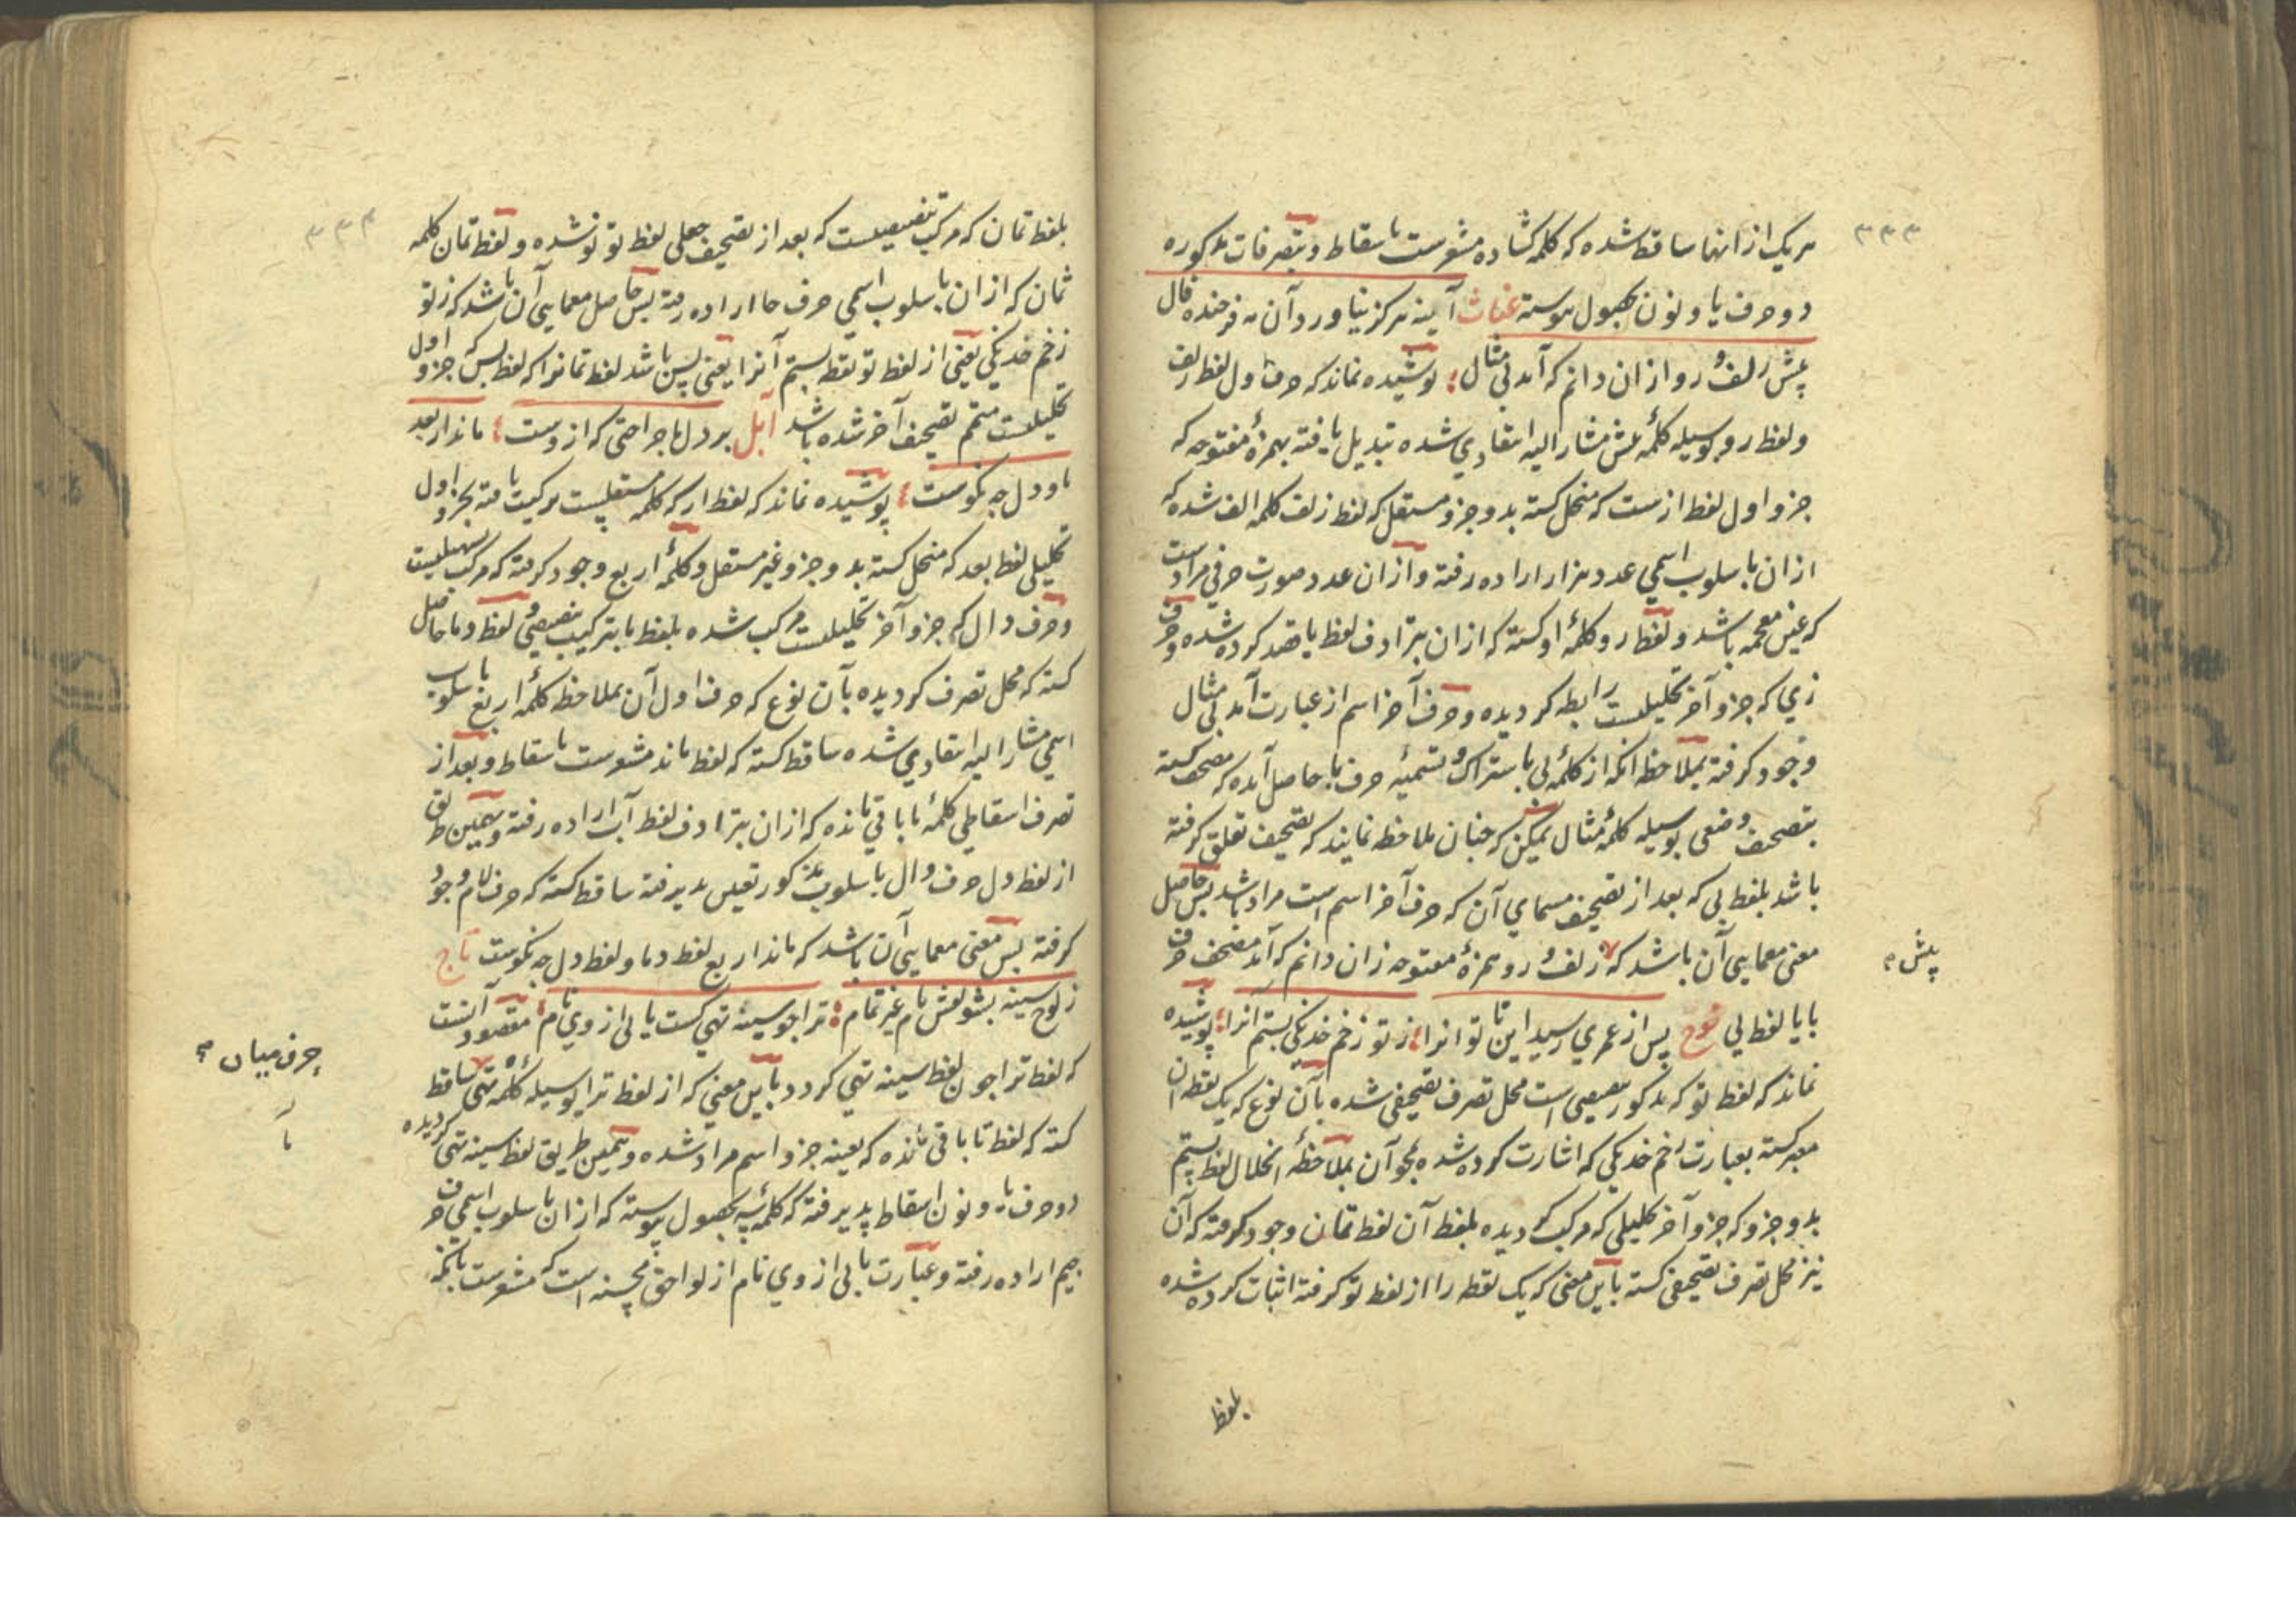 ۳۳۳
هر یک از انها ساقط شده که کلمه کشاده مشعرست باسقاط و بتصرفات مذکوره
دو حرف یا و نون بحصول پیوسته غیاث آینه هرکز نیاورد آن مه فرخنده فال
پیش زلف و رو ازان دانم که آمد بی مثال پوشیده نماند که حرف اول لفظ زلف
و لفظ رو بوسیله کلمهٔ پیش مشار الیه انتقادی شده تبدیل یافته بهمزهٔ مفتوحه که
جزو اول لفظ ازست که منحل کشته بدو جزو مستقل که لفظ زلف کلمه الف شده که
ازان باسلوب اسمی عدد هزار اراده رفته و ازان عدد صورت حرفی مرادست
که غین معجمه باشد و لفظ رو کلمهٔ او کشته که ازان بترادف لفظ یا قصد کرده شده و حرف
زی که جزو آخر تحلیلیست رابطه کردیده و حرف آخر اسم از عبارت آمد بی مثال
وجود کرفته بملاحظه انکه از کلمهٔ بی باشتراک و تسمیهٔ حرف با حاصل آمده که مصحف کشته
بتصحیف وضعی بوسیله کلمهٔ مثال یمکن که چنان ملاحظه نمایند که تصحیف تعلق کرفته
باشد بلفظ بی که بعد از تصحیف مسمای آن که حرف آخر اسم است مراد باشد پس حاصل
معنی معمایی آن باشد که زلف و رو همزهٔ مفتوحه زان دانم که آمد مصحف حرف
پیش
با یا لفظ بی نوح پس از عمری رسید این تا توانرا ز تو زخم خدنکی بستم آنرا پوشیده
نماند که لفظ تو که مذکور تنصیصی است محل تصرف تصحیفی شده بآن نوع که یک نقطه ان
معبر کشته بعبارت زخم خدنکی که اشارت کرده شده بمحو آن بملاحظهٔ انحلال لفظ بستم
بدو جزو که جزو آخر تحلیلی که مرکب کردیده بلفظ آن لفظ تمان وجود کرفته که آن
نیز محل تصرف تصحیفی کشته باین معنی که یک نقطه را از لفظ تو کرفته اثبات کرده شده
بلفظ
۳۳۴
بلفظ تمان که مرکب تنصیصیست که بعد از تصحیف جعلی لفظ تو نو شده و لفظ تمان کلمه
ثمان که ازان باسلوب اسمی حرف حا اراده رفته پس حاصل معمایی آن باشد که ز تو
زخم خدنکی یعنی از لفظ تو نقطه بستم آنرا یعنی پس باشد لفظ تمانرا که لفظ بس که جزو اول
تحلیلیست متمم تصحیف آخر شده باشد آبل بر دل ما جراحتی که ازوست ماند ار بعد
ما و دل چه نکوست پوشیده نماند که لفظ ار که کلمه مستقلیست ترکیب یافته بجزو اول
تحلیلی لفظ بعد که منحل کشته بدو جزو غیر مستقل و کلمهٔ اربع وجود کرفته که مرکب
و حرف دال که جزو آخر تحلیلیست مرکب شده بلفظ ما بترکیب تنصیصی و لفظ دما حاصل
کشته که محل تصرف کردیده بآن نوع که حرف اول آن بملاحظه کلمهٔ اربع باسلوب
اسمی مشار الیه انتقادی شده ساقط کشته که لفظ ماند مشعرست باسقاط و بعد از
تصرف اسقاطی کلمهٔ ما باقی مانده که ازان بترادف لفظ آب اراده رفته و همین طریق
از لفظ دل حرف دال باسلوب مذکور تعیین پذیرفته ساقط کشته که حرف لام وجود
کرفته پس معنی معمایی آن باشد که ماند اربع لفظ دما و لفظ دل چه نکوست تاج
ز لوح سینه بشو نقش نام غیر تمام ترا چو سینه تهی کشت یابی از وی نام مقصود آنست
که لفظ ترا چون لفظ سینه تهی کردد باین معنی که از لفظ ترا بوسیله کلمهٔ تهی ساقط
حرف میان
کشته که لفظ تا باقی مانده که بعینه جزو اسم مراد شده و همین طریق لفظ سینه تهی کردیده
دو حرف یا و نون اسقاط پذیرفته که کلمهٔ سه بحصول پیوسته که ازان باسلوب اسمی حرف
جیم اراده رفته و عبارت یابی از وی نام از لواحق محسنه است که مشعرست بانکه